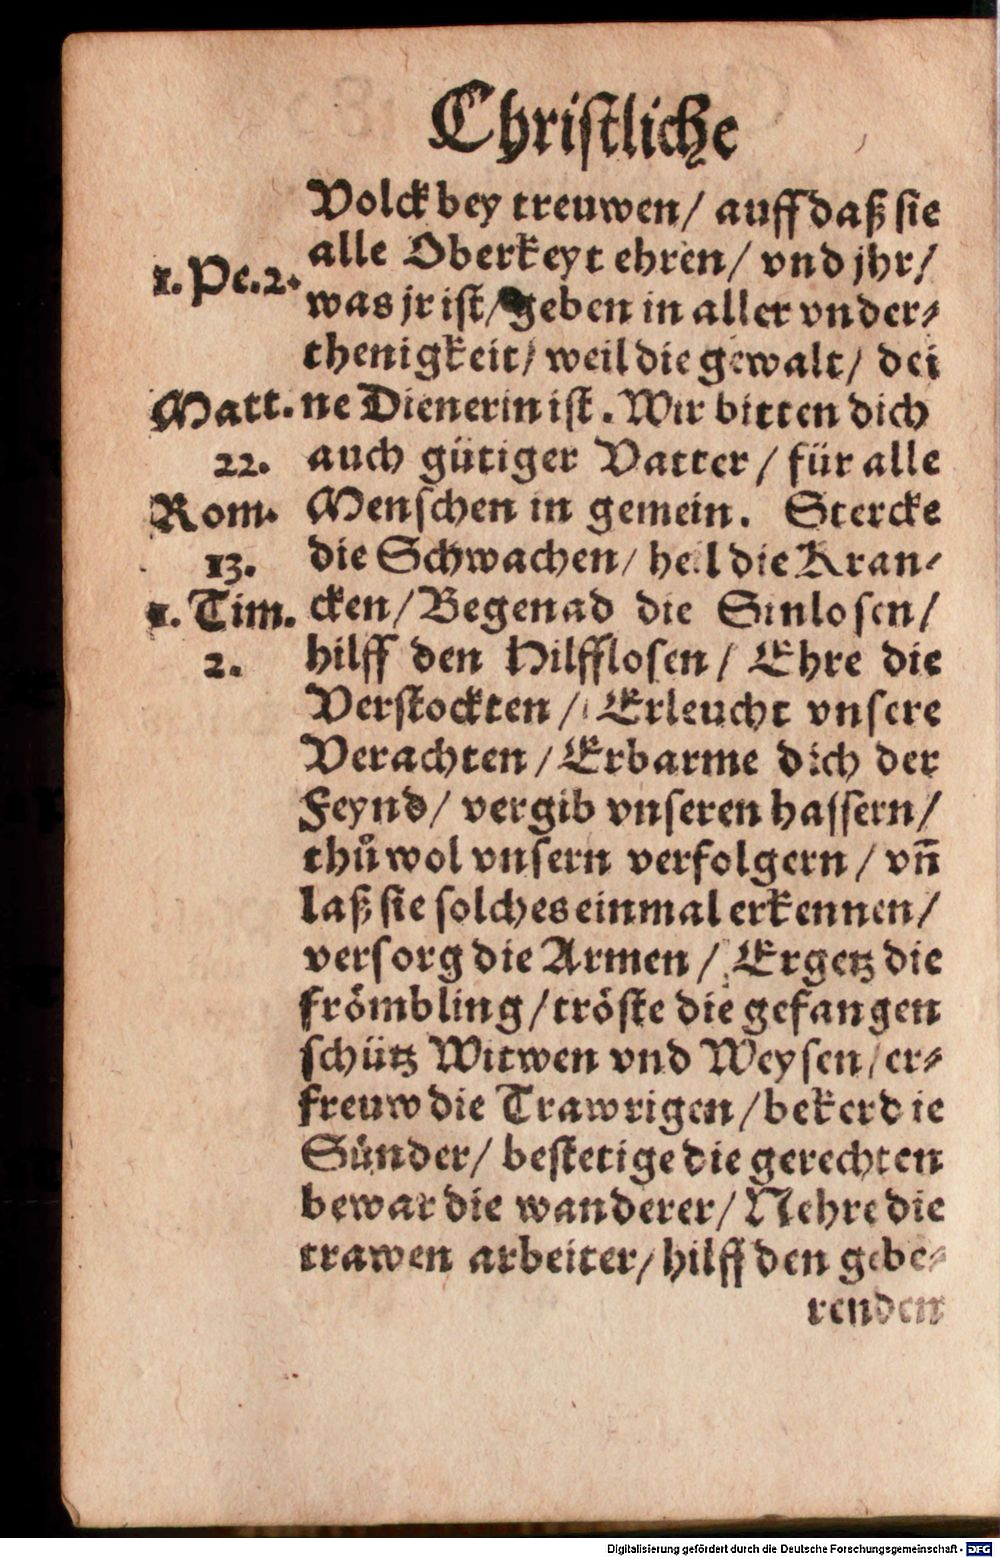 Christliche
Volck bey treuwen/ auff daß sie
alle Oberkeyt ehren/ vnd jhr/
1. Pe. 2.
was jr ist/ geben in aller vnder⸗
thenigkeit/ weil die gewalt/ dei
Matt.
ne Dienerin ist. Wir bitten dich
22.
auch gütiger Vatter/ für alle
Rom.
Menschen in gemein. Stercke
13.
die Schwachen/ heil die Kran⸗
1. Tim.
cken/ Begenad die Sinlosen/
2.
hilff den Hilfflosen/ Ehre die
Verstockten/ Erleucht vnsere
Verachten/ Erbarme dich der
Feynd/ vergib vnseren hassern/
thuͦ wol vnsern verfolgern/ vn̄
laß sie solches einmal erkennen/
versorg die Armen/ Ergetz die
frömbling/ tröste die gefangen
schütz Witwen vnd Weysen/ er⸗
freuw die Trawrigen/ beker die
Sünder/ bestetige die gerechten
bewar die wanderer/ Nehre die
trawen arbeiter/ hilff den gebe⸗
renden
Digitalisierung gefördert durch die Deutsche Forschungsgemeinschaft - DFG